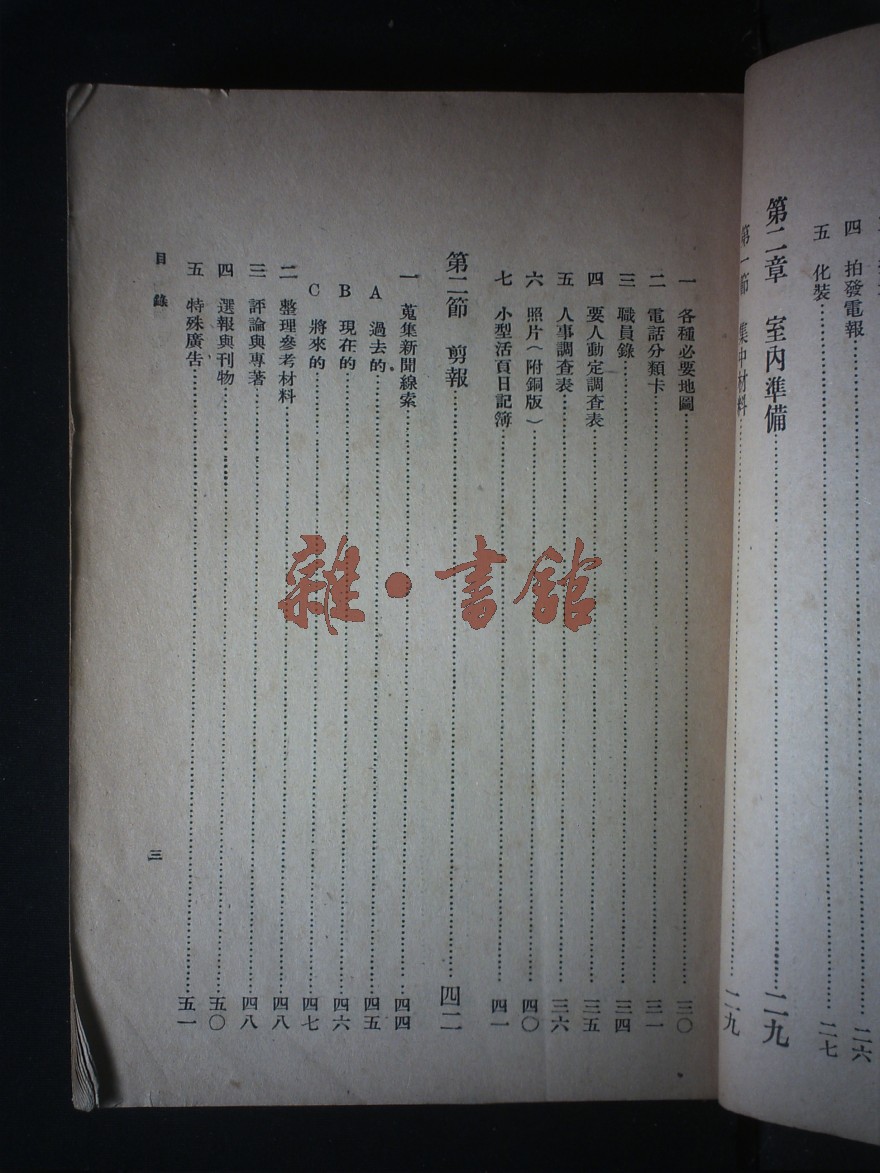 四 拍發電報 二六
五 化裝 二七
第二章 室內準備 二九
第一節 集中材料 二九
一 各種必要地圖 三〇
二 電話分類卡 三一
三 職員錄 三四
四 要人動定調查表 三五
五 人事調查表 三六
六 照片(附銅版) 四〇
七 小型活頁日記簿 四一
第二節 剪報 四二
一 蒐集新聞線索 四四
A 過去的 四五
B 現在的 四六
C 將來的 四七
二 整理參考材料 四八
三 評論與專著 四八
四 選報與刊物 五〇
五 特殊廣告 五一
目錄
三
雜·書館